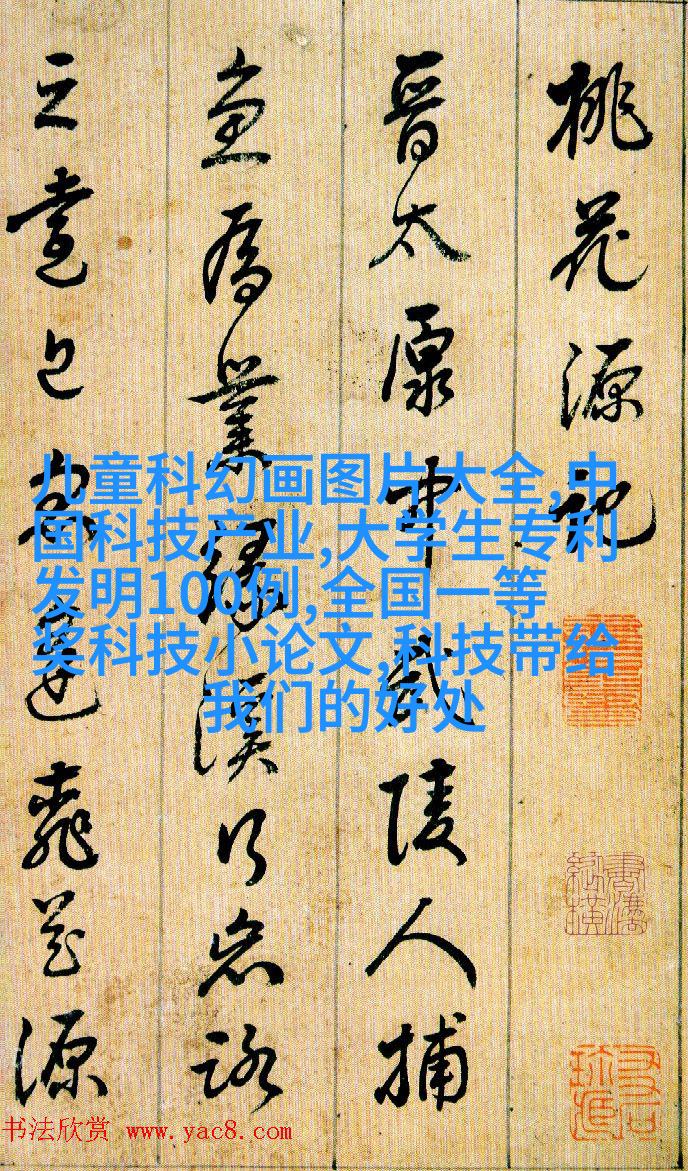 桃花源記
晉太原中武陵人捕
魚為業緣溪行忘路
之遠近忽逢桃花源
儿童科幻画图片大全,中
国科技产业,大学生专利
发明100例,全国一等
奖科技小论文,科技带给
我们的好处
书法欣赏 www.yac8.com